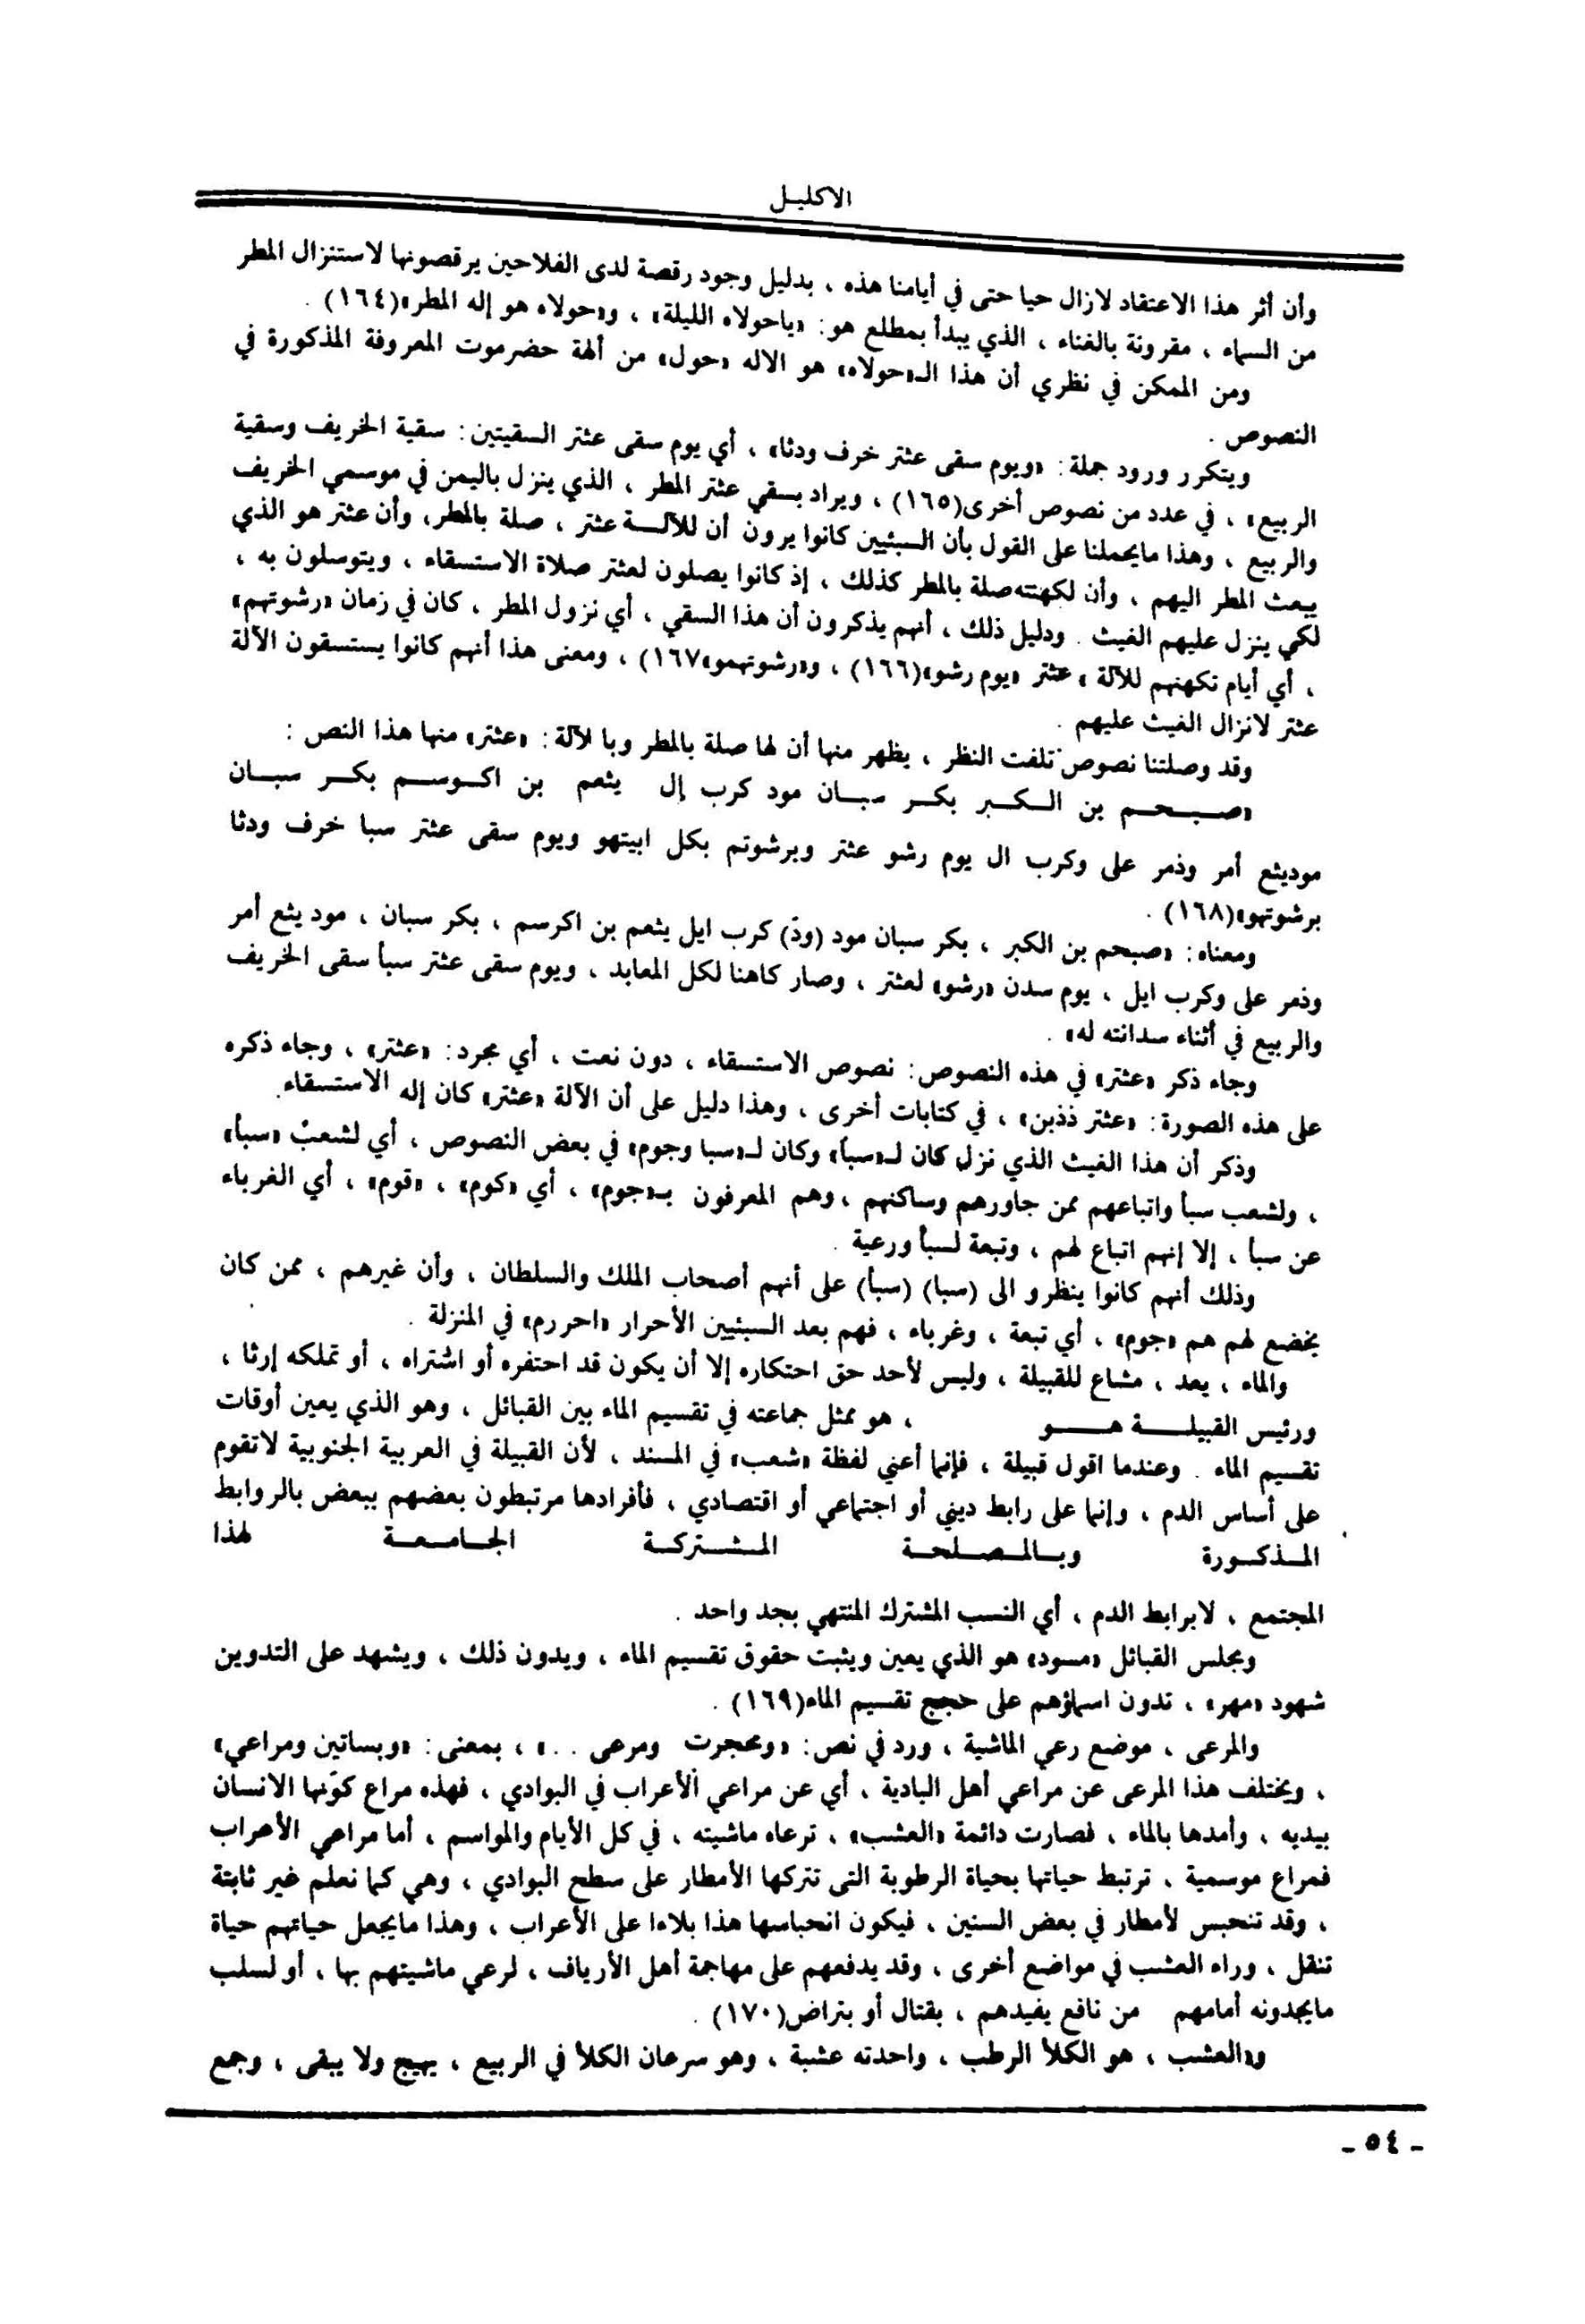 الاكليل
وأن أثر هذا الاعتقاد لازال حيا حتى في أيامنا هذه ، بدليل وجود رقصة لدى الفلاحين يرقصونها لاستنزال المطر
من السماء ، مقرونة بالغناء ، الذي يبدأ بمطلع هو: «ياحولاه الليلة» ، و«حولاه هو إله المطر»(١٦٤) .
ومن الممكن في نظري أن هذا الـ«حولاه» هو الاله «حول» من ألهة حضرموت المعروفة المذكورة في
النصوص .
ويتكرر ورود جملة: «ويوم سقى عثتر خرف ودثا» ، أي يوم سقى عثتر السقيتين: سقية الخريف وسقية
الربيع» ، في عدد من نصوص أخرى(١٦٥) ، ويراد بسقي عثتر المطر ، الذي ينزل باليمن في موسمي الخريف
والربيع ، وهذا مايحملنا على القول بأن السبئيين كانوا يرون أن للآلـــة عثتر ، صلة بالمطر، وأن عثتر هو الذي
يبعث المطر اليهم ، وأن لكهنته صلة بالمطر كذلك ، إذ كانوا يصلون لعثتر صلاة الاستسقاء ، ويتوسلون به ،
لكي ينزل عليهم الغيث . ودليل ذلك ، أنهم يذكرون أن هذا السقي ، أي نزول المطر ، كان في زمان «رشوتهم»
، أي أيام تكهنهم للآلة ، عثتر «يوم رشو»(١٦٦) ، و«رشوتهمو»١٦٧) ، ومعنى هذا أنهم كانوا يستسقون الآلة
عثتر لانزال الغيث عليهم .
وقد وصلتنا نصوص تلفت النظر ، يظهر منها أن لها صلة بالمطر وبا لآلة: «عثتر» منها هذا النص :
«صـبـحـم بن الـكـبـر بكـر سبـان مود كرب إل يثعم بن اكـوسـم بكـر سبـان
موديثع أمر وذمر على وكرب ال يوم رشو عثتر وبرشوتم بكل ابيتهو ويوم سقى عثتر سبا خرف ودثا
برشوتهو»(١٦٨) .
ومعناه: «صبحم بن الكبر ، بكر سبان مود (ودّ) كرب ايل يثعم بن اكرسم ، بكر سبان ، مود يثع أمر
وذمر على وكرب ايل ، يوم سدن «رشو» لعثتر ، وصار كاهنا لكل المعابد ، ويوم سقى عثتر سبأ سقى الخريف
والربيع في أثناء سدانته له» .
وجاء ذكر «عثتر» في هذه النصوص: نصوص الاستسقاء ، دون نعت ، أي مجرد: «عثتر» ، وجاء ذكره
على هذه الصورة: «عثتر ذذبن» ، في كتابات أخرى ، وهذا دليل على أن الآلة «عثتر» كان إله الاستسقاء.
وذكر أن هذا الغيث الذي نزل كان لـ«سبأ» وكان لـ«سبا وجوم» في بعض النصوص ، أي لشعب «سبأ»
، ولشعب سبأ واتباعهم ممن جاورهم وساكنهم ، وهم المعرفون بـ«جوم» ، أي «كوم» ، «قوم» ، أي الغرباء
عن سبأ ، إلا إنهم اتباع لهم ، وتبعة لسبأ ورعية .
وذلك أنهم كانوا ينظرو الى (سبا) (سبأ) على أنهم أصحاب الملك والسلطان ، وأن غيرهم ، ممن كان
يخضع لهم هم «جوم» ، أي تبعة ، وغرباء ، فهم بعد السبئيين الأحرار «احررم» في المنزلة .
والماء ، يعد ، مشاع للقبيلة ، وليس لأحد حق احتكاره إلا أن يكون قد احتفره أو اشتراه ، أو تملكه إرثا ،
ورئيس القبيلـــة هـــو ، هو ممثل جماعته في تقسيم الماء بين القبائل ، وهو الذي يعين أوقات
تقسيم الماء . وعندما اقول قبيلة ، فإنما أعني لفظة «شعب» في المسند ، لأن القبيلة في العربية الجنوبية لاتقوم
على أساس الدم ، وإنما على رابط ديني أو اجتماعي أو اقتصادي ، فأفرادها مرتبطون بعضهم ببعض بالروابط
المـذكـورة وبـالمـصـلحـة المـشـتركـة الجـامـعـة لهذا
المجتمع ، لابرابط الدم ، أي النسب المشترك المنتهي بجد واحد .
ومجلس القبائل «مسود» هو الذي يعين ويثبت حقوق تقسيم الماء ، ويدون ذلك ، ويشهد على التدوين
شهود «مهر» ، تدون اسماؤهم على حجج تقسيم الماء(١٦٩) .
والمرعى ، موضع رعي الماشية ، ورد في نص: «ومحجرت ومرعى ..» ، بمعنى: «وبساتين ومراعي»
، ويختلف هذا المرعى عن مراعي أهل البادية ، أي عن مراعي الأعراب في البوادي ، فهذه مراع كوّنها الانسان
بيديه ، وأمدها بالماء ، فصارت دائمة «العشب» ، ترعاه ماشيته ، في كل الأيام والمواسم ، أما مراعي الأعراب
فمراع موسمية ، ترتبط حياتها بحياة الرطوبة التى تتركها الأمطار على سطح البوادي ، وهي كما نعلم غير ثابتة
، وقد تنحبس لأمطار في بعض السنين ، فيكون انحباسها هذا بلاءا على الأعراب ، وهذا مايجعل حياتهم حياة
تنقل ، وراء العشب في مواضع أخرى ، وقد يدفعهم على مهاجمة أهل الأرياف ، لرعي ماشيتهم بها ، أو لسلب
مايجدونه أمامهم من نافع يفيدهم ، بقتال أو بتراض(١٧٠) .
و«العشب ، هو الكلأ الرطب ، واحدته عشبة ، وهو سرعان الكلأ في الربيع ، يهيج ولا يبقى ، وجمع
- ٥٤ -